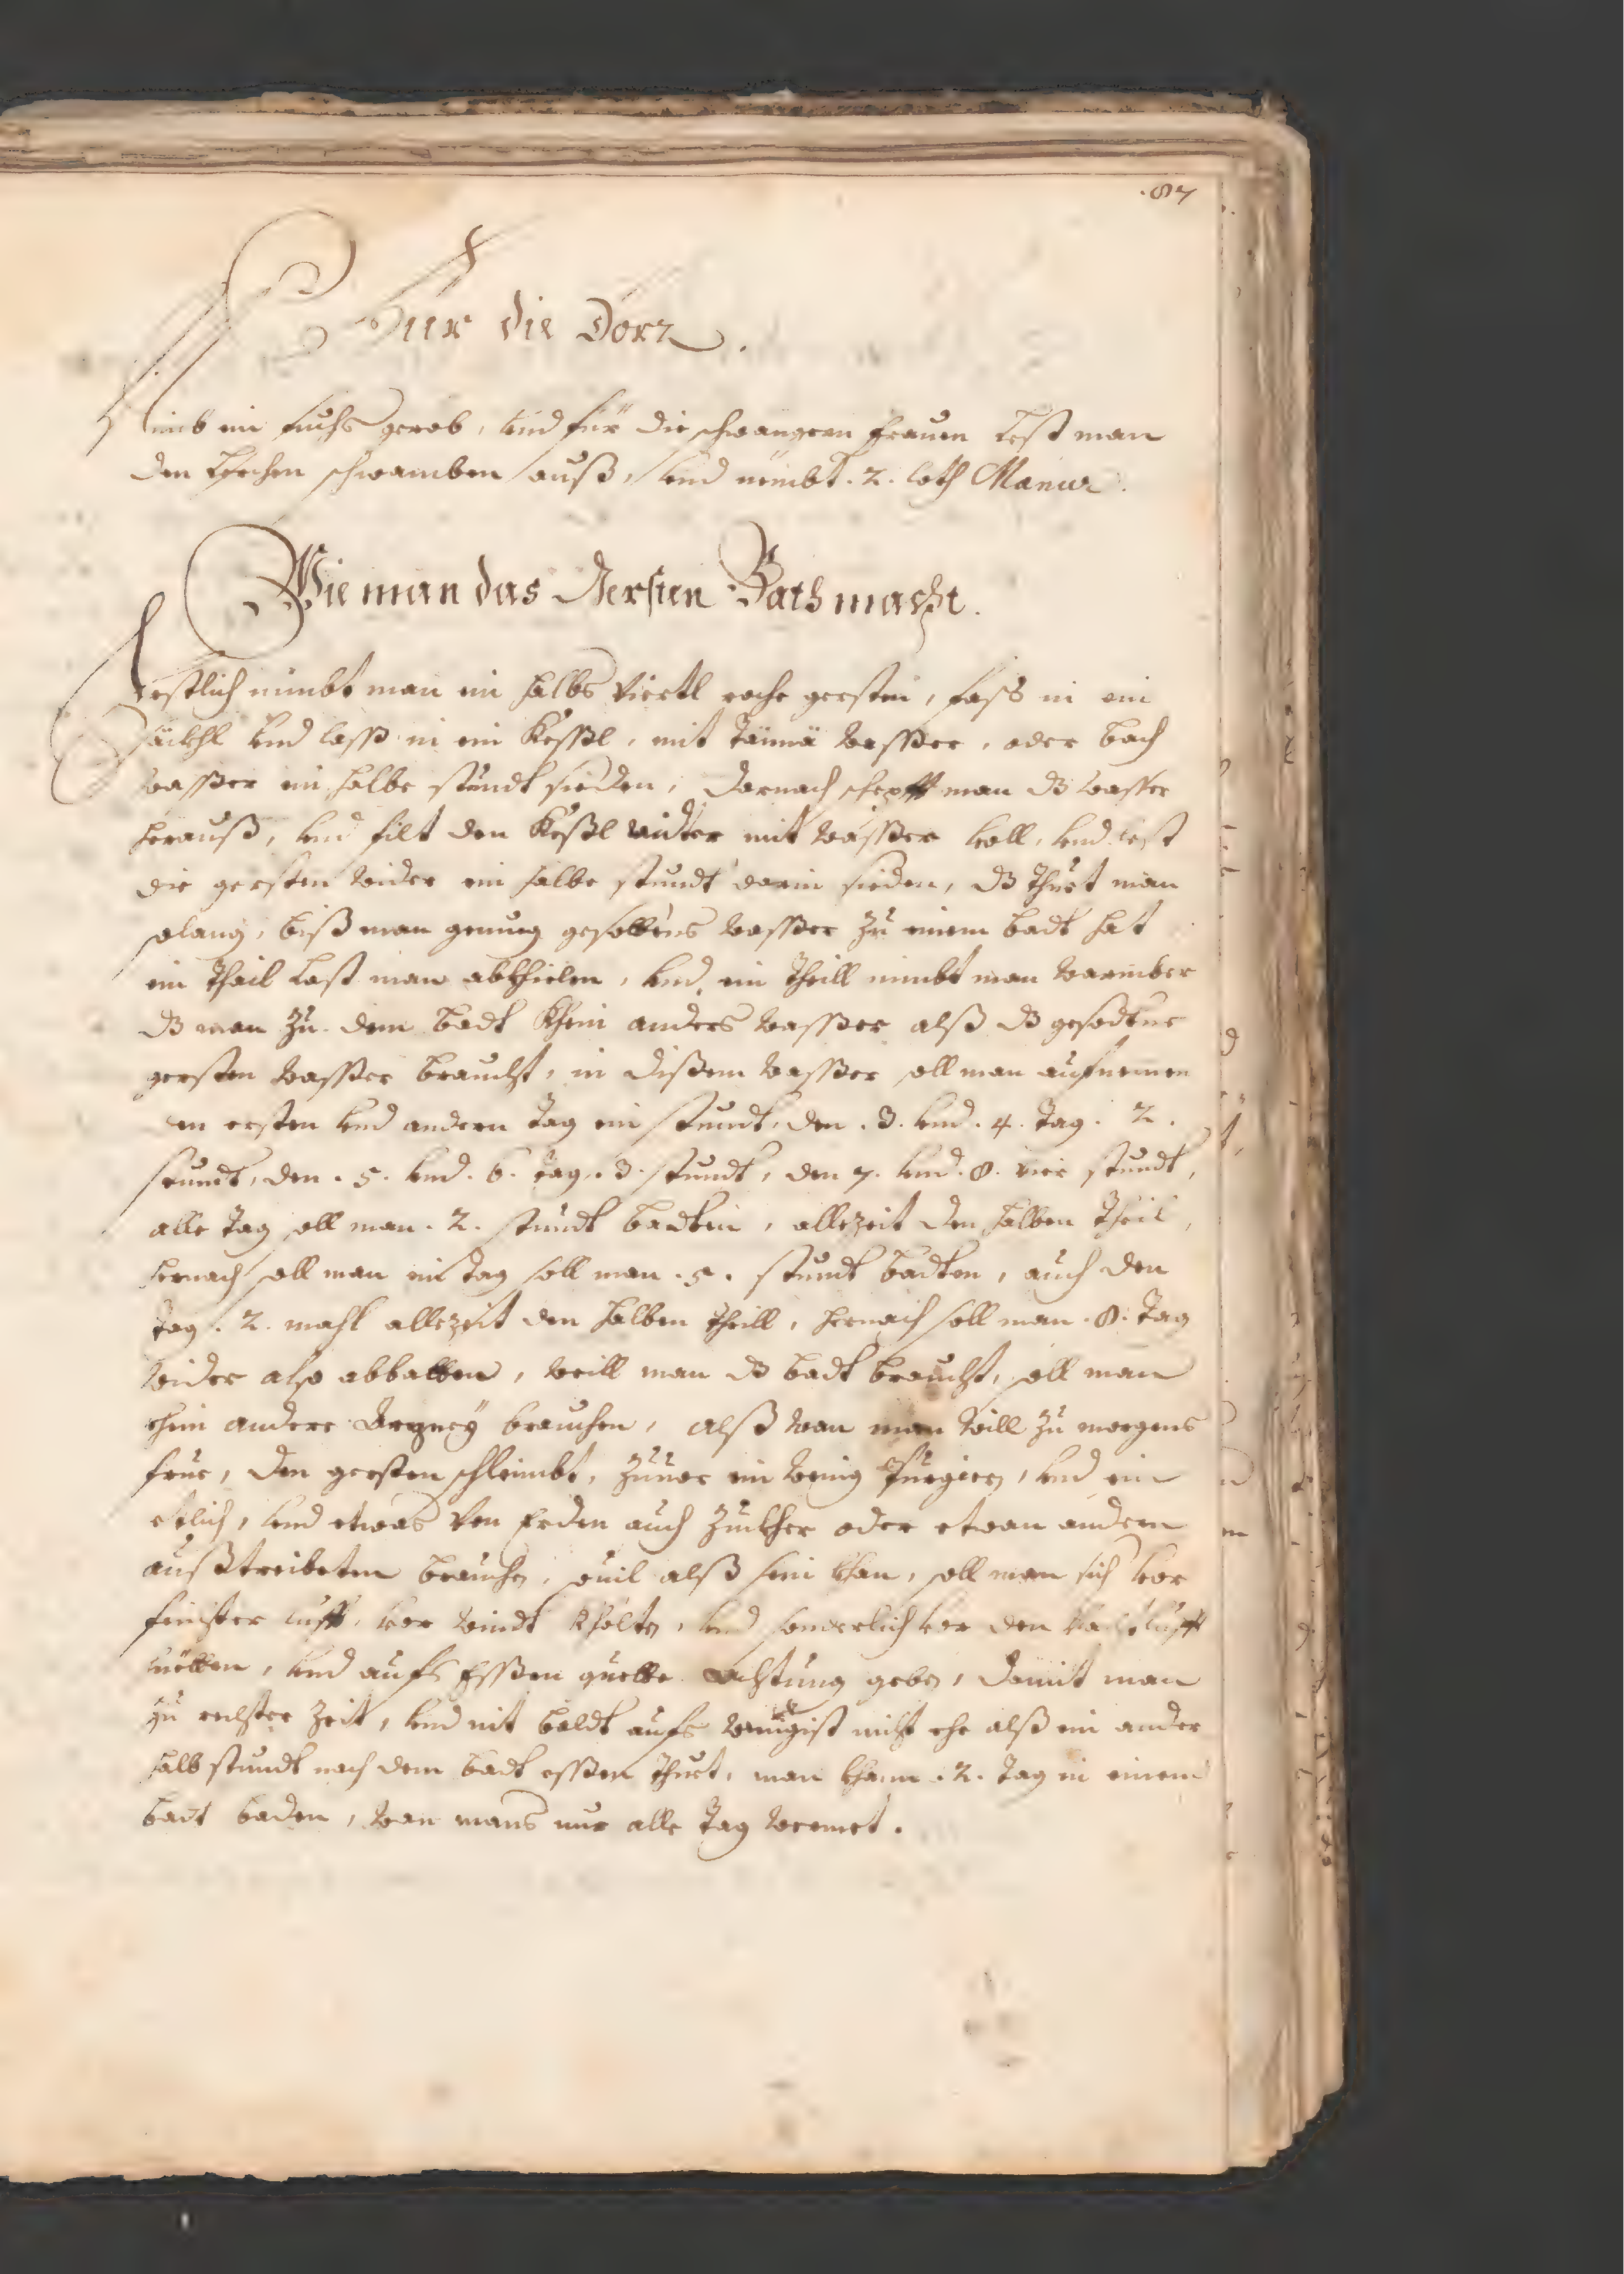 .87
Für die Dörr.
Nimb ein fuchs gerob, vnd für die schwangern frauen lest man
den Lerchen schwamben auß, vnd nimbt .2. loth Manna.
Wie man das Gersten Bath macht.
Erstlich nimbt man ein halbs Viertl rohe gersten, fass in ein
säckhl vnd lasß in ein Keßßl, mit Tänä waßßer, oder bach
waßßer ein halbe stundt sieden, darnach schepfft man dß wasser
herauß, vnd filt den Keßßl widter mit waßßer voll, vnd lest
die gersten wider ein halbe stundt darin sieden, dß thuet man
solang, biß man genueg gesottens waßßer zu einem badt hat
ein thail Last man abkhielen, vnd ein theill nimbt man warmber
dß man zu dem badt khein anders waßßer alß dß gesodtne
gersten waßßer braucht, in dißem waßßer soll man aufnemen
den ersten vnd andern tag ein stundt, den .3. vnd .4. tag .2.
stundt, den .5. vnd .6. tag .3. stundt, den 7. vnd .8. vier stundt,
alle tag soll man .2. stundt badten, allezeit den halben theil,
hernach soll man ein tag soll man .5. stundt badten, auch den
tag .2. mahl allezeit den halben theill, hernach soll man .8. tag
wider also abbatten, weill man dß badt braucht, soll man
khein andere Artzney brauchen, alß wan man will zu morgens
frue, den gersten schleimbt, zuuor ein wenig Purgiern, vnd ein
etlich, vnd etwas von Erden auch Zuckher oder etwan andern
außtreibeten brauchen, souil alß sein khan, soll man sich vor
finster lufft, vor windt khölten, vnd sonderlich vor den nachtlufft
hüetten, vnd aufs Eßßen guette achtung geben, damit man
zu rechter Zeit, vnd nit baldt aufs wenigist nicht ehe alß ein ander
halb stundt nach dem badt eßßen thuet, man khann .2. tag in einem
badt baden, wan mans nur alle tag wermet.